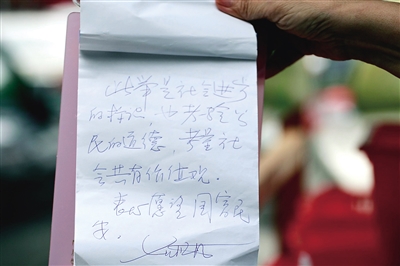 此举是社会进步
的标记，也考验公
民的道德，考量社
会共有价值观。
衷心愿望国富民
安。